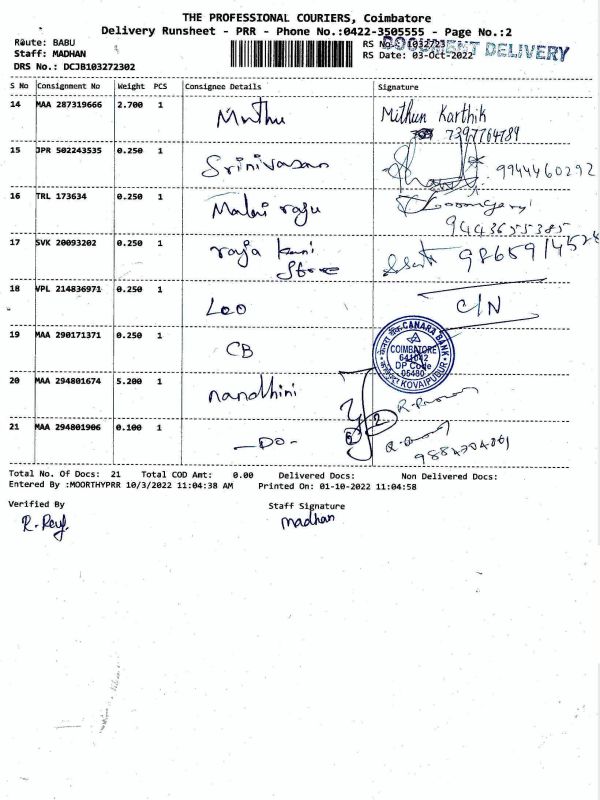 THE PROFESSIONAL COURIERS, Coimbatore
Delivery Runsheet - PRR - Phone No.:0422-3505555 - Page No.:2
Route: BABU
Staff: MADHAN
DRS No.: DCJB103272302
RS No.: 1032723
DOCUMENT DELIVERY
RS Date: 03-Oct-2022
S No Consignment No Weight PCS Consignee Details Signature
14 MAA 287319666 2.700 1 Muthu Mithun Karthik
7397764789
15 JPR 502243535 0.250 1 Srinivasan 9944460292
16 TRL 173634 0.250 1 Malai raju
9443655385
17 SVK 20093202 0.250 1 raja kani
Store
18 VPL 214836971 0.250 1 Leo C/N
19 MAA 290171371 0.250 1 CB
CANARA BANK
COIMBATORE
641042
DP Code
05480
KOVAIPUDUR
20 MAA 294801674 5.200 1 nandhini
21 MAA 294801906 0.100 1 -Do-
Total No. Of Docs: 21 Total COD Amt: 0.00 Delivered Docs: Non Delivered Docs:
Entered By :MOORTHYPRR 10/3/2022 11:04:38 AM Printed On: 01-10-2022 11:04:58
Verified By Staff Signature
madhan